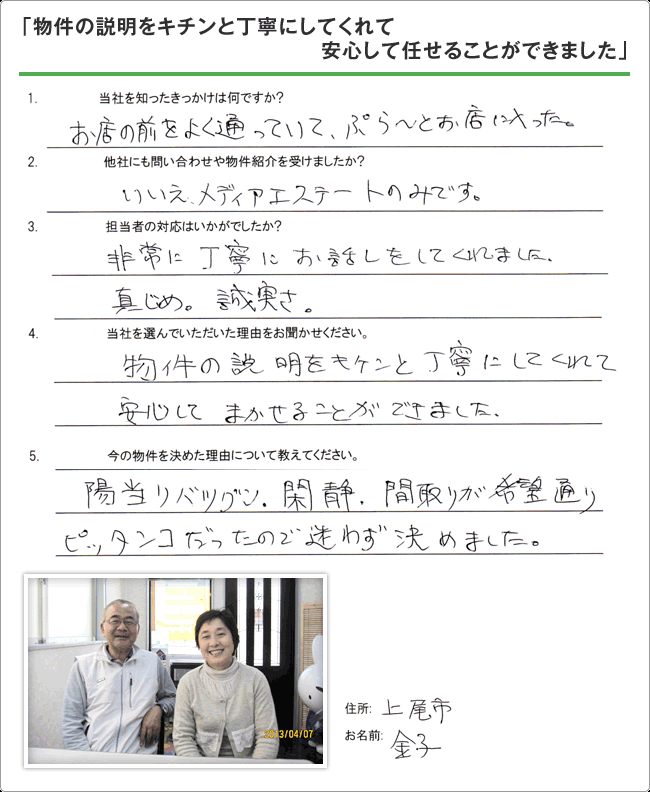 「物件の説明をキチンと丁寧にしてくれて
安心して任せることができました」
1. 当社を知ったきっかけは何ですか?
お店の前をよく通っていて、ぷら〜とお店に入った。
2. 他社にも問い合わせや物件紹介を受けましたか?
いいえ、メディアエステートのみです。
3. 担当者の対応はいかがでしたか?
非常に丁寧にお話しをしてくれました。
真じめ。誠実さ。
4. 当社を選んでいただいた理由をお聞かせください。
物件の説明をキケンと丁寧にしてくれて
安心してまかせることができました。
5. 今の物件を決めた理由について教えてください。
陽当りバツグン、閑静、間取りが希望通り
ピッタンコだったので迷わず決めました。
2013/04/07
住所: 上尾市
お名前: 金子